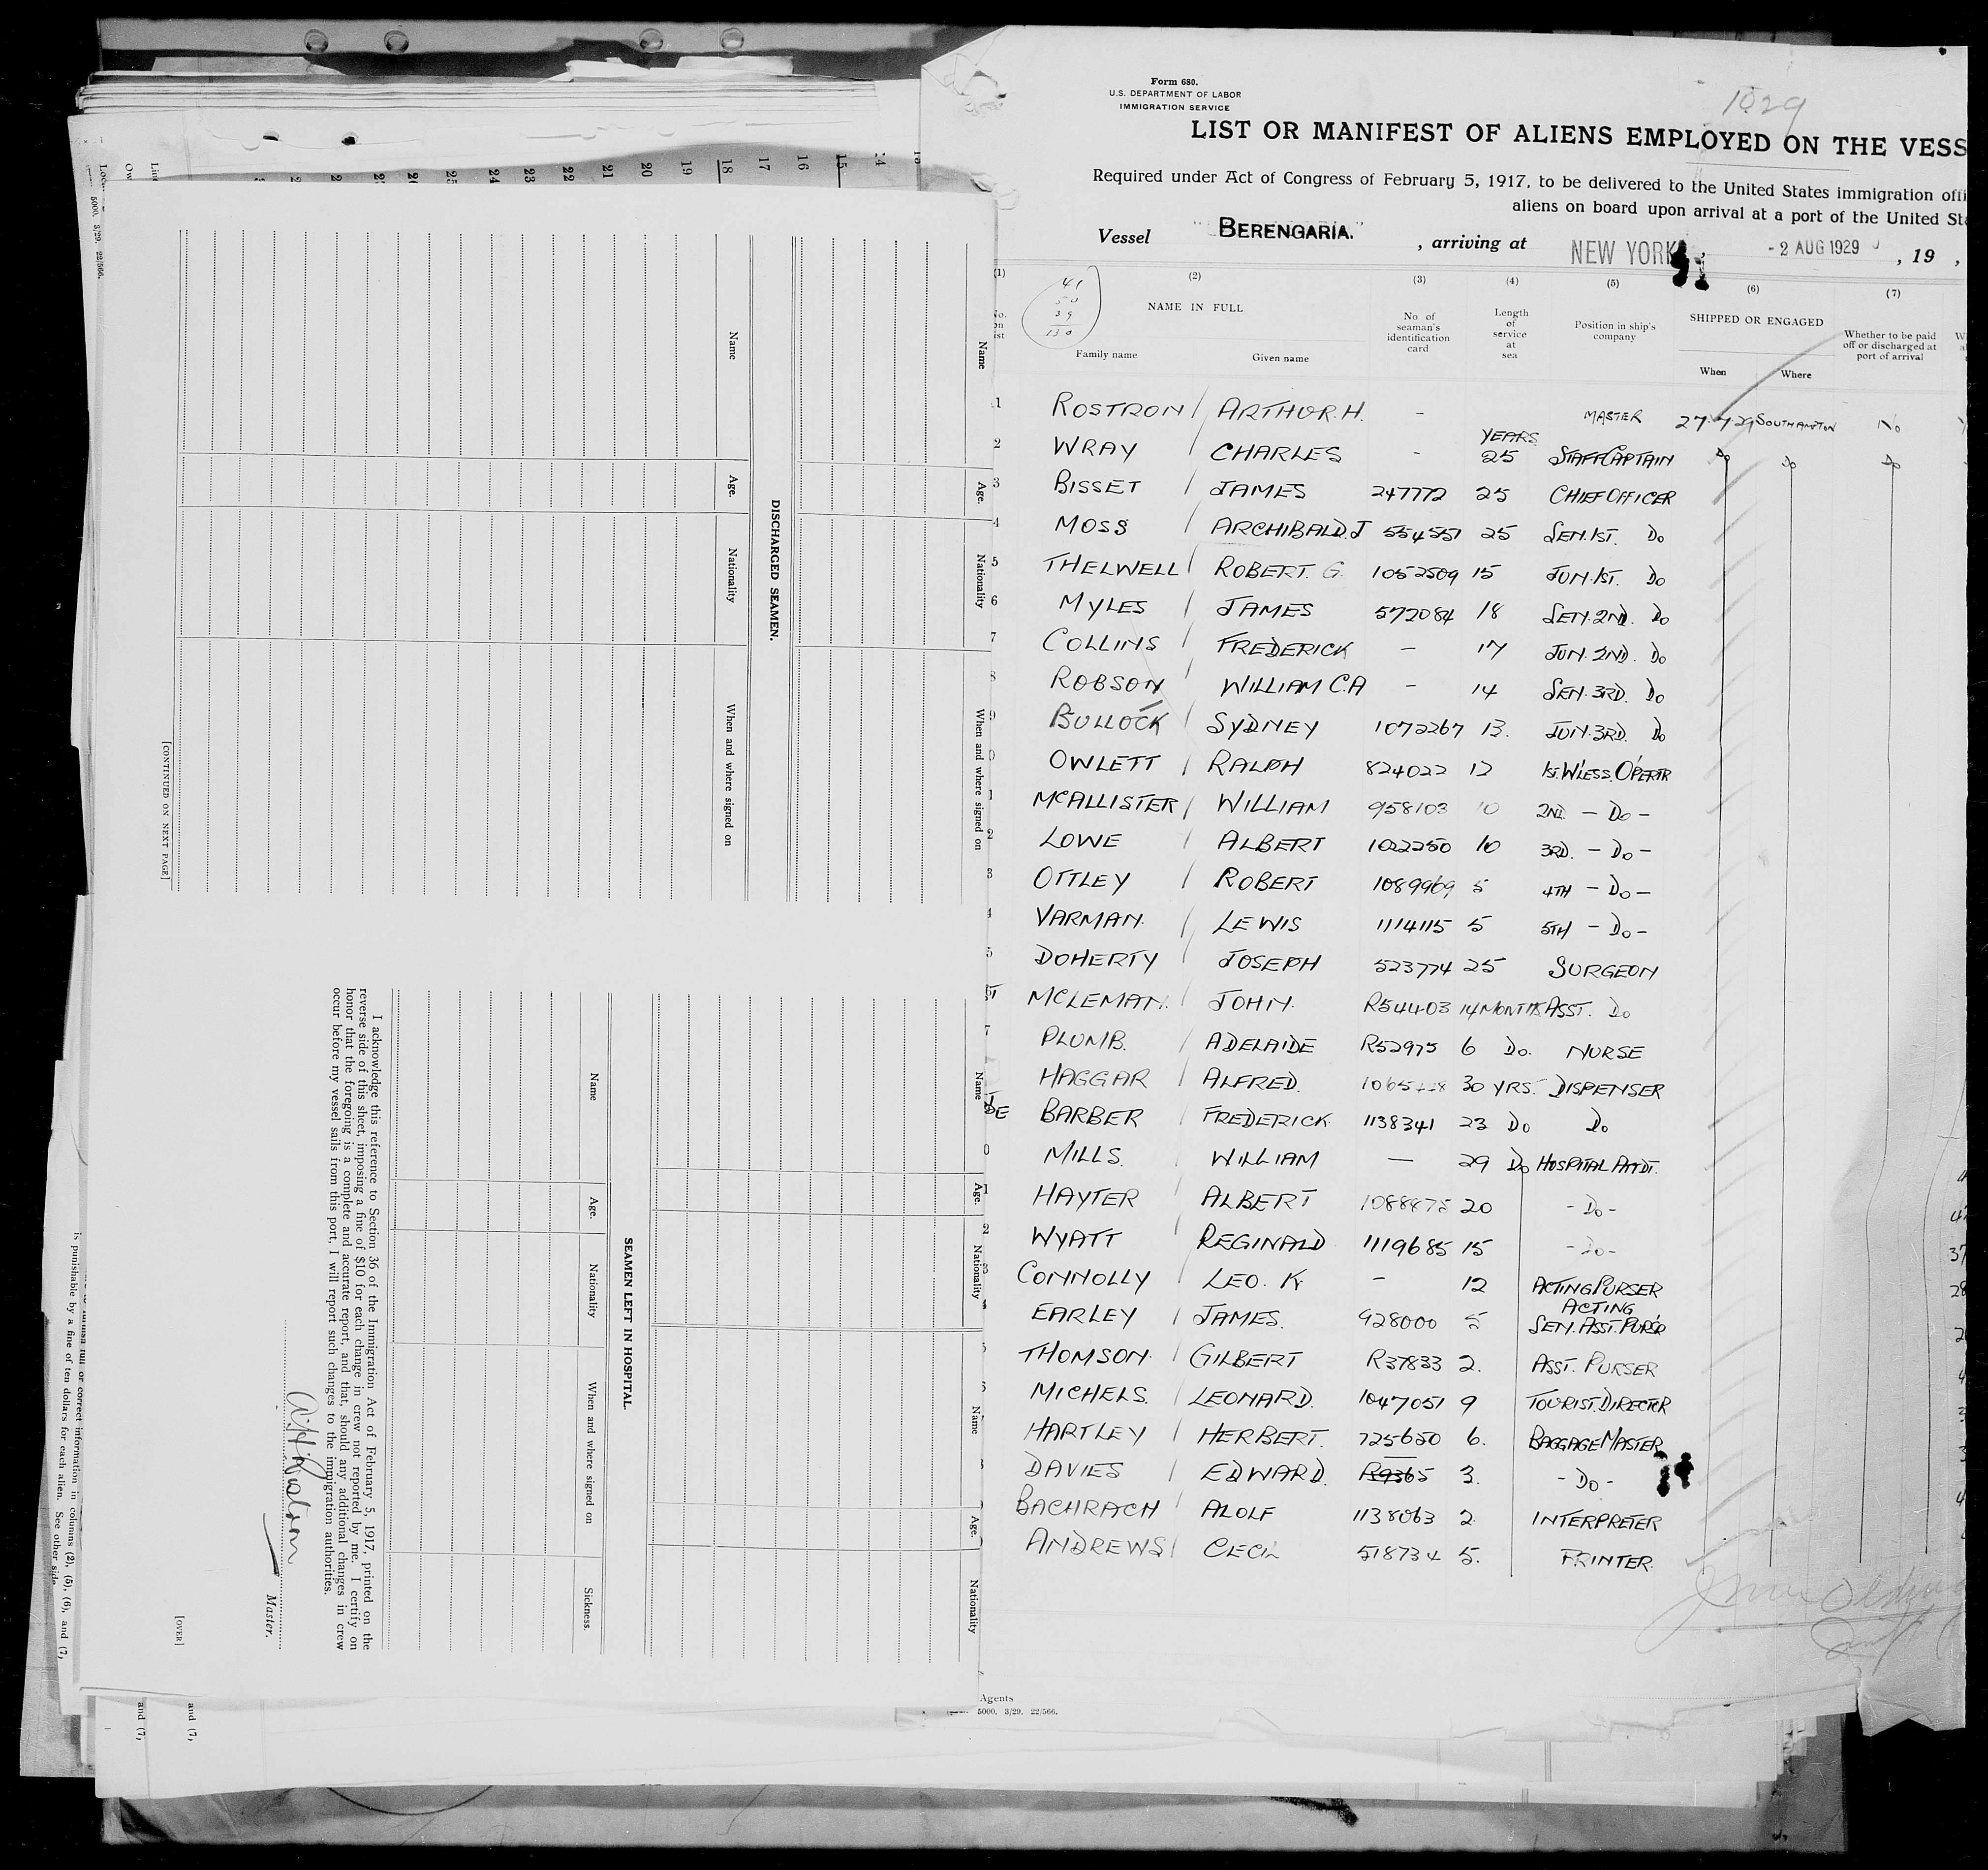 Form 680.
U.S. DEPARTMENT OF LABOR
IMMIGRATION SERVICE
1029
LIST OR MANIFEST OF ALIENS EMPLOYED ON THE VESS
Required under Act of Congress of February 5, 1917, to be delivered to the United States immigration offi
aliens on board upon arrival at a port of the United Sta
Vessel "BERENGARIA." , arriving at NEW YORK - 2 AUG 1929 , 19 ,
(1) (2) (3) (4) (5) (6) (7)
41
50
39
130
NAME IN FULL
Family name Given name
No of seaman's identification card
Length of service at sea
Position in ship's company
SHIPPED OR ENGAGED
When Where
Whether to be paid off or discharged at port of arrival
1 ROSTRON ARTHUR.H. - MASTER 27.7.29 SOUTHAMPTON No
YEARS
2 WRAY CHARLES - 25 STAFF CAPTAIN Do Do Do
3 BISSET JAMES 247772 25 CHIEF OFFICER
4 MOSS ARCHIBALD.J 554551 25 SEN.1ST. Do
5 THELWELL ROBERT. G. 1052509 15 JUN.1ST. Do
6 MYLES JAMES 572084 18 SEN.2ND. Do
7 COLLINS FREDERICK - 17 JUN.2ND. Do
8 ROBSON WILLIAM C.A - 14 SEN.3RD. Do
9 BULLOCK SYDNEY 1072267 13. JUN.3RD. Do
0 OWLETT RALPH 824022 12 1ST.W'LESS.OPERTR
1 MCALLISTER WILLIAM 958103 10 2ND. - Do -
2 LOWE ALBERT 1022250 10 3RD. - Do -
3 OTTLEY ROBERT 1089969 5 4TH - Do -
4 VARMAN. LEWIS 1114115 5 5TH - Do -
5 DOHERTY JOSEPH 523774 25 SURGEON
MCLEMAN. JOHN. R54403 14 MONTHS ASST. Do
7 PLUMB. ADELAIDE R52975 6 Do. NURSE
HAGGAR ALFRED. 30 YRS. DISPENSER
BARBER FREDERICK. 1138341 23 Do Do
0 MILLS. WILLIAM - 29 Do HOSPITAL ATTDT.
1 HAYTER ALBERT 1088475 20 - Do -
2 WYATT REGINALD 1119685 15 - Do -
CONNOLLY LEO. K - 12 ACTING PURSER
ACTING
EARLEY JAMES. 928000 5 SEN. ASST. PURS'R
5 THOMSON. GILBERT R37833 2. ASST. PURSER
6 MICHELS. LEONARD. 1047051 9 TOURIST.DIRECTOR
HARTLEY HERBERT. 725650 6. BAGGAGE MASTER
DAVIES EDWARD. R9365 3. - Do -
BACHRACH ALOLF 1138063 2 INTERPRETER
ANDREWS CECIL 518734 5. PRINTER.
Agents
5000. 3/29. 22/566.
5000. 3/29. 22/566.
24 23 22 21 20 19 18 17 16 15 14
Name Age. Nationality When and where signed on
DISCHARGED SEAMEN.
Name Age. Nationality When and where signed on
[CONTINUED ON NEXT PAGE]
Name Age. Nationality
Name Age. Nationality
SEAMEN LEFT IN HOSPITAL.
Name Age. Nationality When and where signed on Sickness.
I acknowledge this reference to Section 36 of the Immigration Act of February 5, 1917, printed on the
reverse side of this sheet, imposing a fine of $10 for each change in crew not reported by me. I certify on
honor that the foregoing is a complete and accurate report, and that, should any additional changes in crew
occur before my vessel sails from this port, I will report such changes to the immigration authorities.
A.H.Rostron
Master.
[OVER]
furnish full or correct information in columns (2), (5), (6), and (7),
is punishable by a fine of ten dollars for each alien. See other side.
and (7),
and (7),